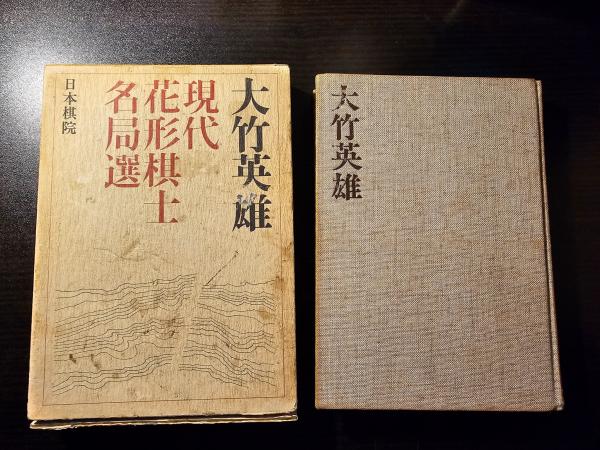 大竹英雄
現代
花形棋士
名局選
日本棋院
大竹英雄